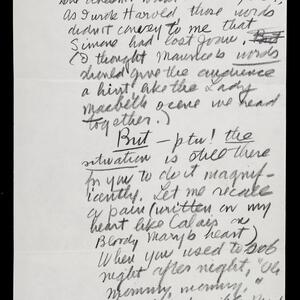 As I wrote Harold, those words
didn't convey to me that
Simone had lost Josie. But
(I thought Maurice's words
should give the audience
a hint like the Lady
Macbeth scene we read
together.)
But — ptu! the
situation is still there
for you to do it magnif-
icently. Let me recall
a pain (written on my
heart like Calais on
Bloody Mary's heart)
When you used to sob
night after night, "Oh,
Mommy, mommy,"